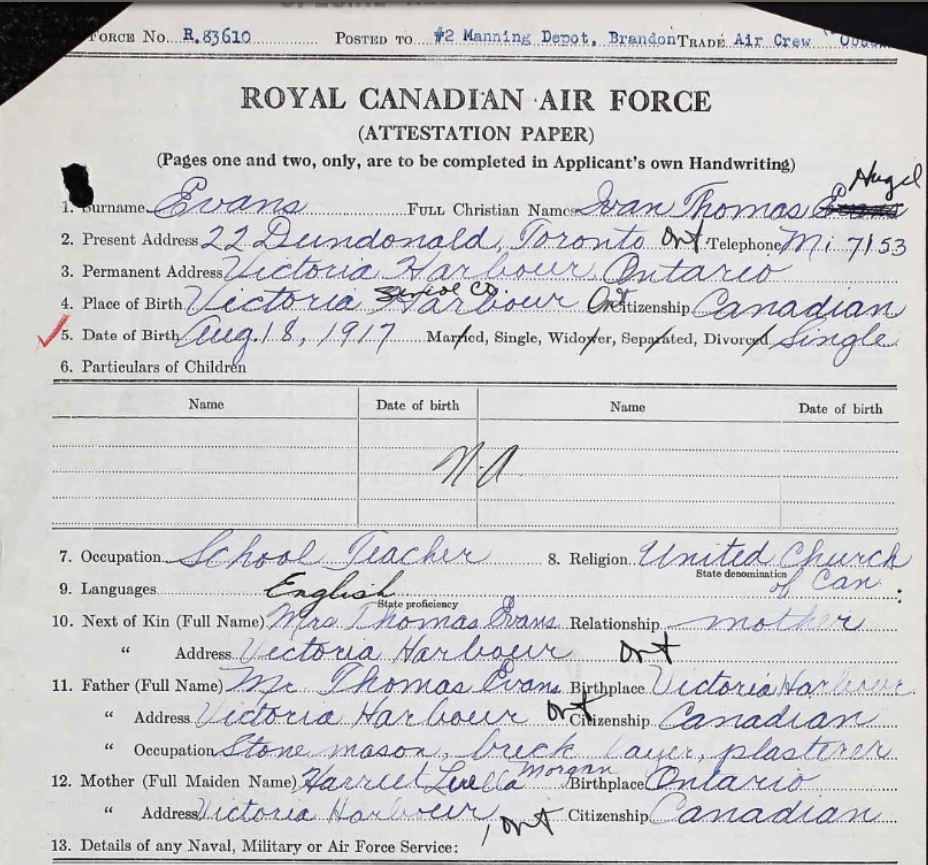 FORCE NO. R.83610 POSTED TO #2 Manning Depot, Brandon TRADE Air Crew
ROYAL CANADIAN AIR FORCE
(ATTESTATION PAPER)
(Pages one and two, only, are to be completed in Applicant's own Handwriting)
1. Surname Evans FULL Christian Names Ivan Thomas Evans
2. Present Address 22 Dundonald, Toronto Ont Telephone Mi 7153
3. Permanent Address Victoria Harbour, Ontario
4. Place of Birth Victoria Harbour Simcoe Co Ont Citizenship Canadian
5. Date of Birth Aug. 18, 1917 Married, Single, Widower, Separated, Divorced Single
6. Particulars of Children
Name Date of birth Name Date of birth
N.A
7. Occupation School Teacher 8. Religion United Church
State denomination of Can.
9. Languages English
State proficiency
10. Next of Kin (Full Name) Mrs Thomas Evans Relationship mother
" Address Victoria Harbour Ont
11. Father (Full Name) Mr Thomas Evans Birthplace Victoria Harbour
" Address Victoria Harbour Ont Citizenship Canadian
" Occupation Stone mason, brick layer, plasterer
12. Mother (Full Maiden Name) Harriet Morgan Birthplace Ontario
" Address Victoria Harbour, Ont Citizenship Canadian
13. Details of any Naval, Military or Air Force Service: